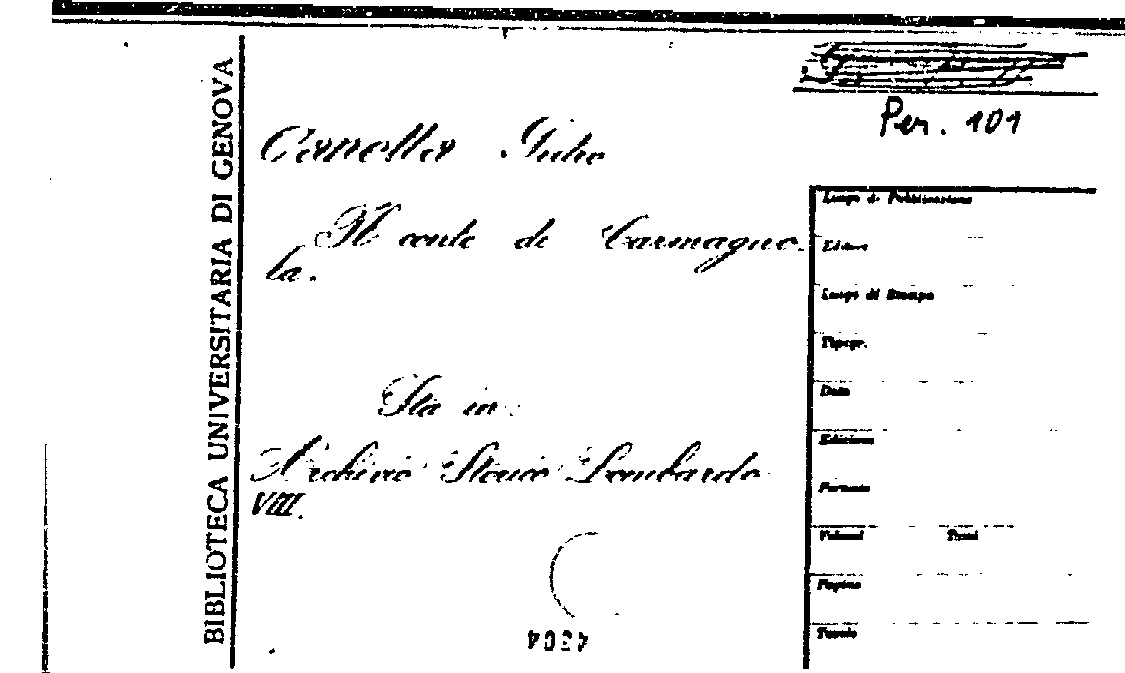 BIBLIOTECA UNIVERSITARIA DI GENOVA
Per. 101
Canella Giulio
Il conte di Carmagno-
la.
Sta in:
Archivio Storico Lombardo
VIII.
4304
Luogo di Pubblicazione
Editore
Luogo di Stampa
Tipogr.
Data
Edizione
Formato
Volumi Tomi
Pagine
Tavole